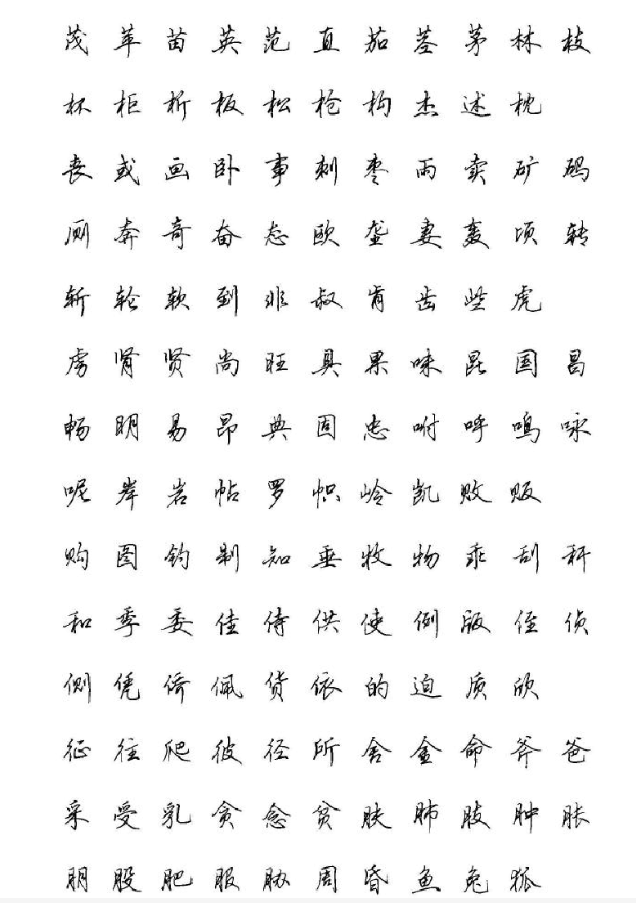 茂 苹 苗 英 范 直 茄 茎 茅 林 枝
杯 柜 析 板 松 枪 构 杰 述 枕
丧 或 画 卧 事 刺 枣 雨 卖 矿 码
厕 奔 奇 奋 态 欧 垄 妻 轰 顷 转
斩 轮 软 到 非 叔 肯 齿 些 虎
虏 肾 贤 尚 旺 具 果 味 昆 国 昌
畅 明 易 昂 典 固 忠 咐 呼 鸣 咏
呢 岸 岩 帖 罗 帜 岭 凯 败 贩
购 图 钓 制 知 垂 牧 物 乖 刮 秆
和 季 委 佳 侍 供 使 例 版 侄 侦
侧 凭 侨 佩 货 依 的 迫 质 欣
征 往 爬 彼 径 所 舍 金 命 斧 爸
采 受 乳 贪 念 贫 肤 肺 肢 肿 胀
朋 股 肥 服 胁 周 昏 鱼 兔 狐